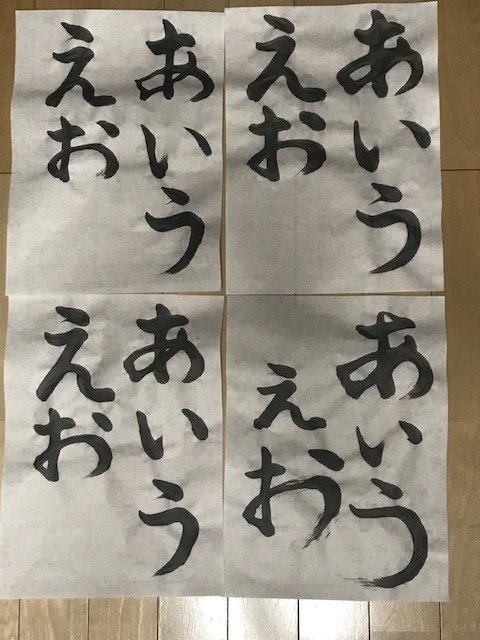 あいう
えお
あいう
えお
あいう
えお
あいう
えお